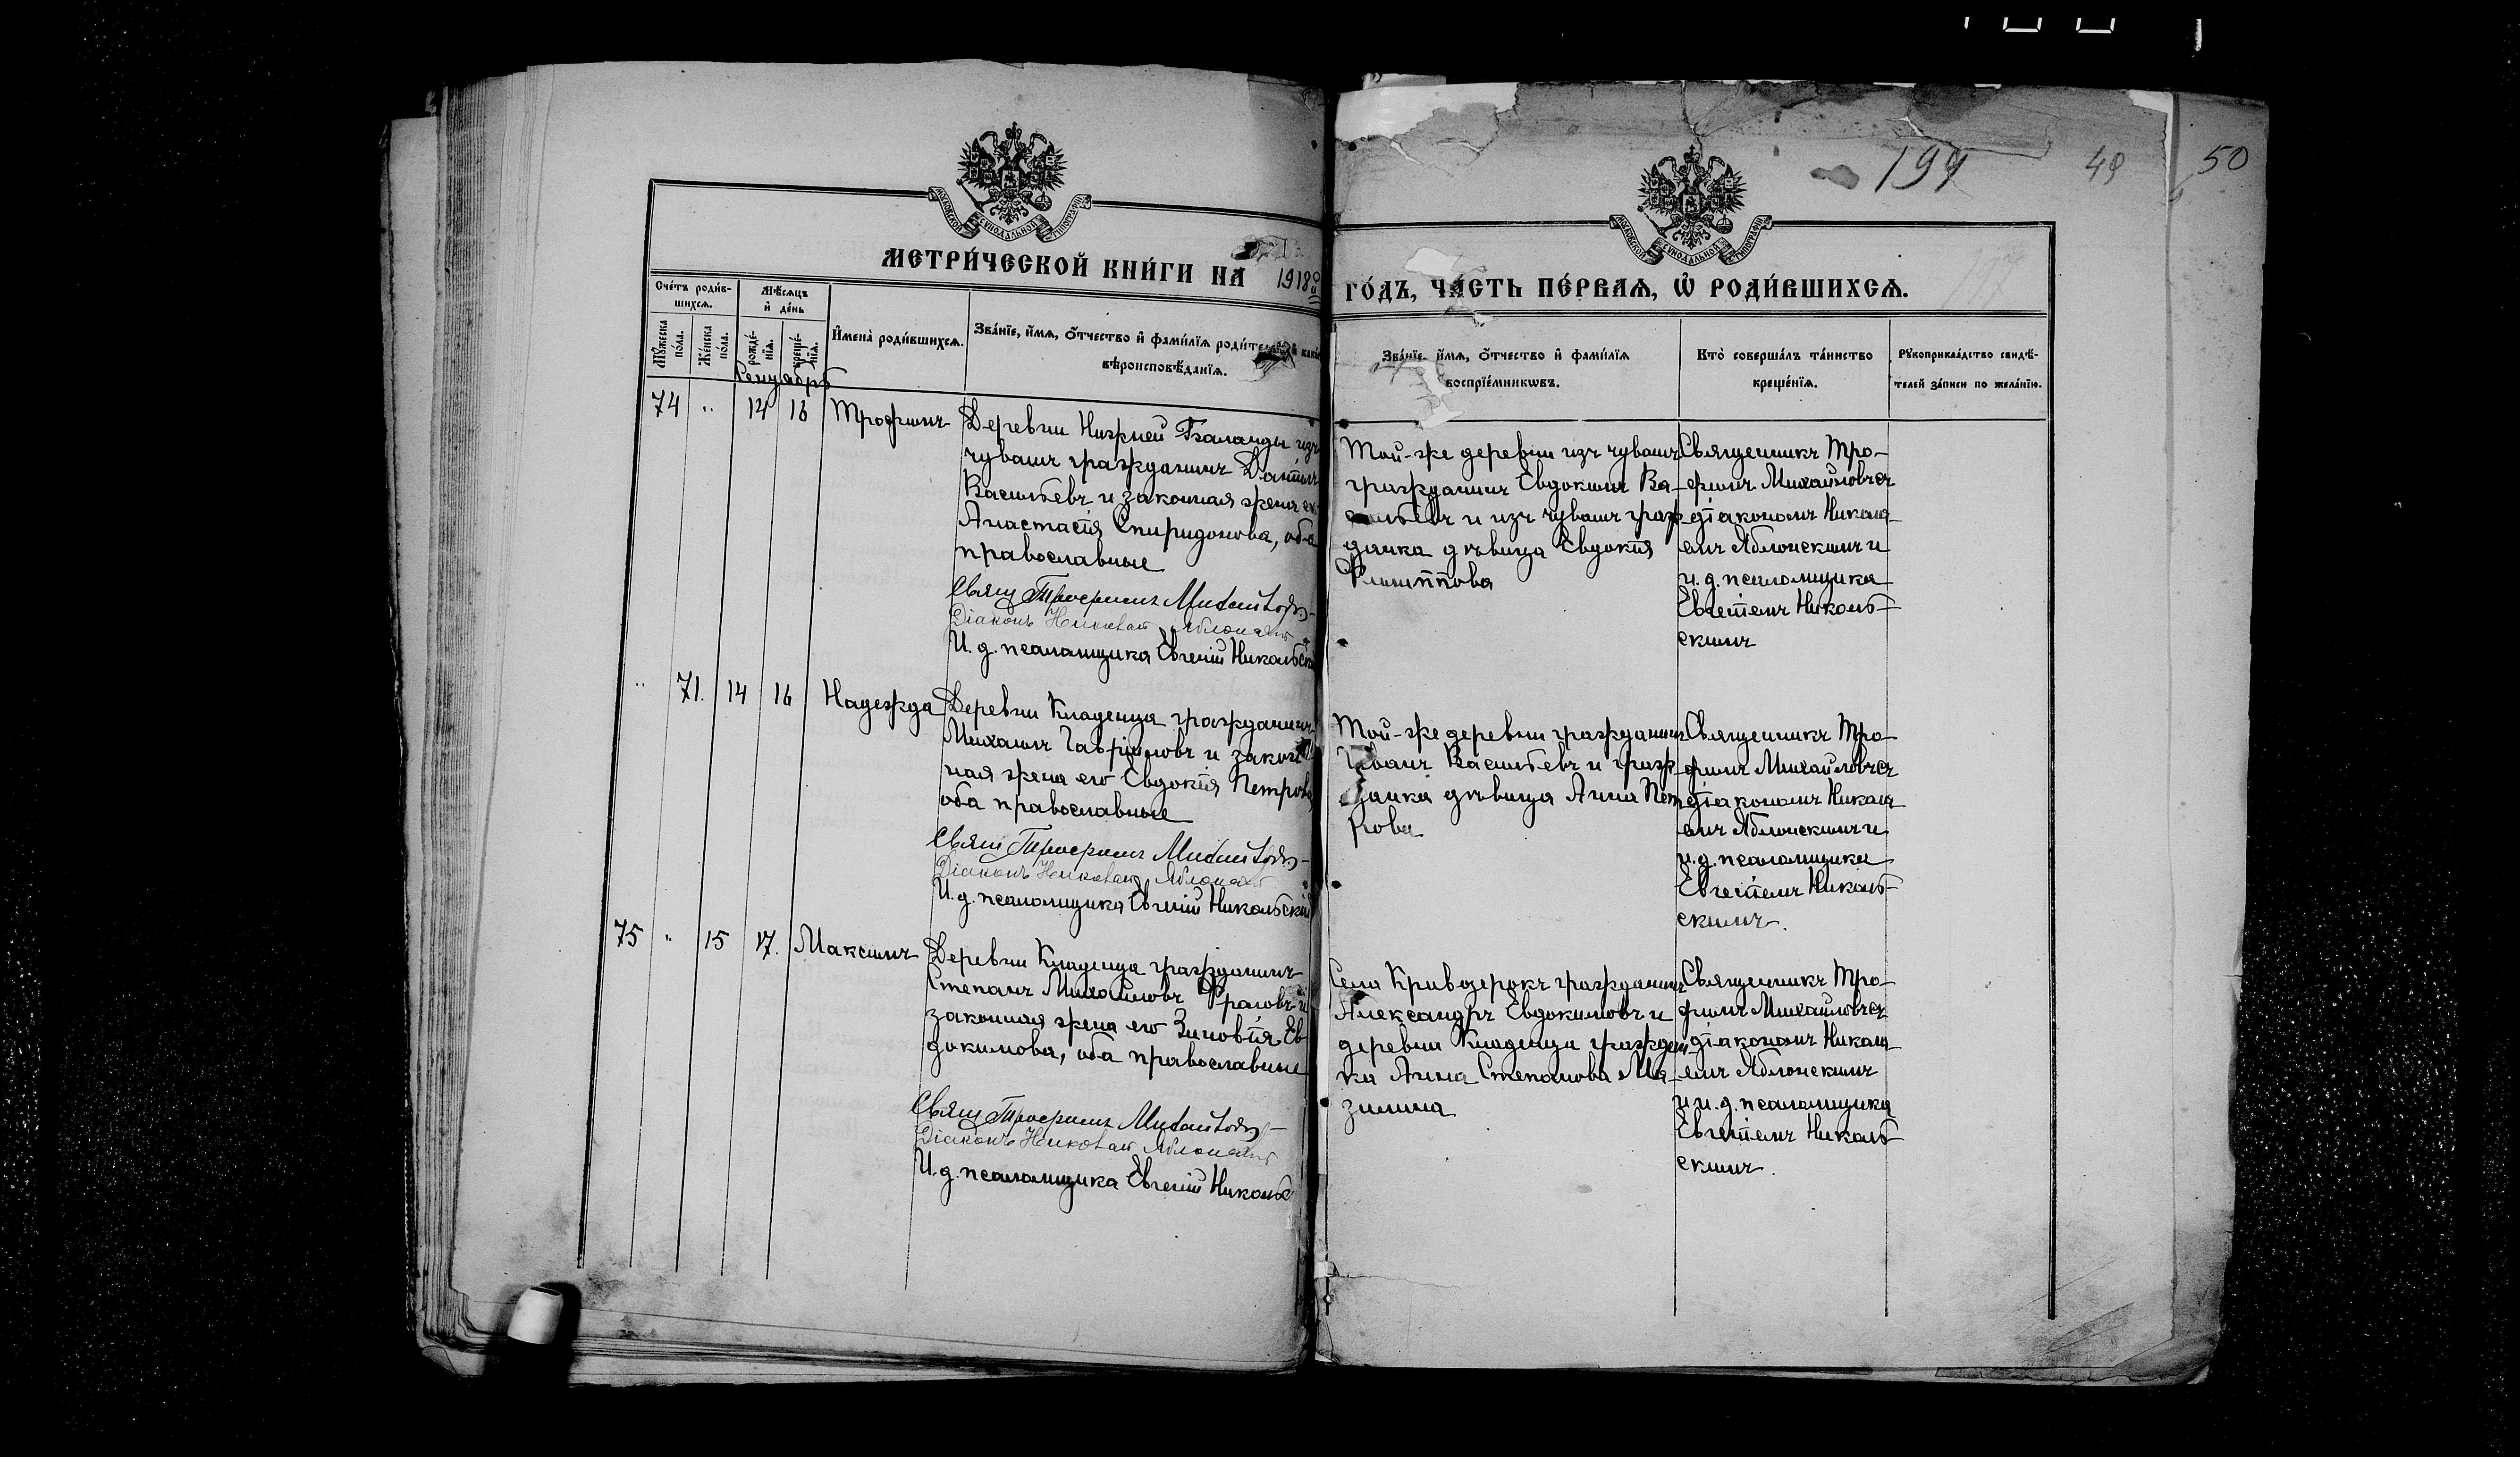 194
49
50
МОСКОВСКОЙ СѴНОДАЛЬНОЙ ТИПОГРАФІИ
МОСКОВСКОЙ СѴНОДАЛЬНОЙ ТИПОГРАФІИ
МЕТРИ́ЧЕСКОЙ КНИ́ГИ НА 1918й
ГО́ДЪ, ЧА́СТЬ ПЕ́РВАѦ, Ѡ РОДИ́ВШИХСѦ.
Сче́тъ роди́в-
шихсѧ.
Мѣ́сѧцъ
и де́нь
Мꙋ́жеска
по́ла.
Же́нска
по́ла.
рожде́-
нїѧ.
креще́-
нїѧ.
И́мена̀ роди́вшихсѧ.
Зва́нїе, и́мѧ, о́тчество и фами́лїѧ роди́телей и како́
вѣроисповѣ́данїѧ.
Зва́нїе, и́мѧ, о́тчество и фами́лїѧ
воспрїе́мникѡвъ.
Кто̀ соверша́лъ та́инство
креще́нїѧ.
Рꙋкоприкла́дство свидѣ́-
телей за́писи по жела́нїю.
Сентябрь
74 " 14 16 Трофимъ
Деревни Нижней Каланды изъ
чувашъ гражданинъ
Васильевъ и законная жена ег
Анастасія Спиридонова, оба
православные
Свящ Трофимъ Михайловъ
Діаконъ Николай Яблонскій
И. д. псаломщика Евгеній Никольскі
Той-же деревни изъ чувашъ
гражданинъ Евдокимъ Ва-
сильевъ и изъ чувашъ граж-
данка дѣвица Евдокія
Филиппова
Священникъ Тро-
фимъ Михайловъ съ
діакономъ Никола-
емъ Яблонскимъ и
и. д. псаломщика
Евгеніемъ Николь-
скимъ
" 71. 14 16 Надежда
Деревни Кладенца гражданинъ
Михаилъ Гавріиловъ и закон-
ная жена его Евдокія Петрова,
оба православные
Свящ Трофимъ Михайловъ
Діаконъ Николай Яблонскій
И. д. псаломщика Евгеній Никольскій
Той-же деревни гражданинъ
Иванъ Васильевъ и граж-
данка дѣвица Анна Пет-
рова
Священникъ Тро-
фимъ Михайловъ съ
діакономъ Никола-
емъ Яблонскимъ и
и. д. псаломщика
Евгеніемъ Николь-
скимъ.
75 " 15 17. Максимъ
Деревни Кладенца гражданинъ
Степанъ Михайловъ и
законная жена его Зиновія Ев-
докимова, оба православные
Свящ Трофимъ Михайловъ
Діаконъ Николай Яблонскій
И. д. псаломщика Евгеній Никольск
Села Кривозерокъ гражданинъ
Александръ Евдокимовъ и
деревни Кладенца граждан-
ка Анна Степанова Ма-
зилина
Священникъ Тро-
фимъ Михайловъ съ
діакономъ Никола-
емъ Яблонскимъ
и и. д. псаломщика
Евгеніемъ Николь-
скимъ.